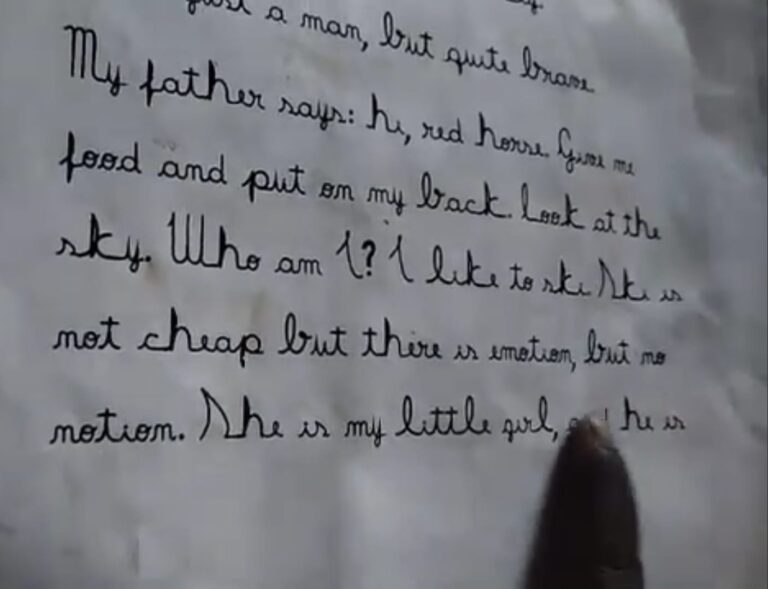 just a man, but quite brave.
My father says: hi, red horse. Give me
food and put on my back. Look at the
sky. Who am I? I like to ski. Ski is
not cheap but there is emotion, but no
notion. She is my little girl, he is